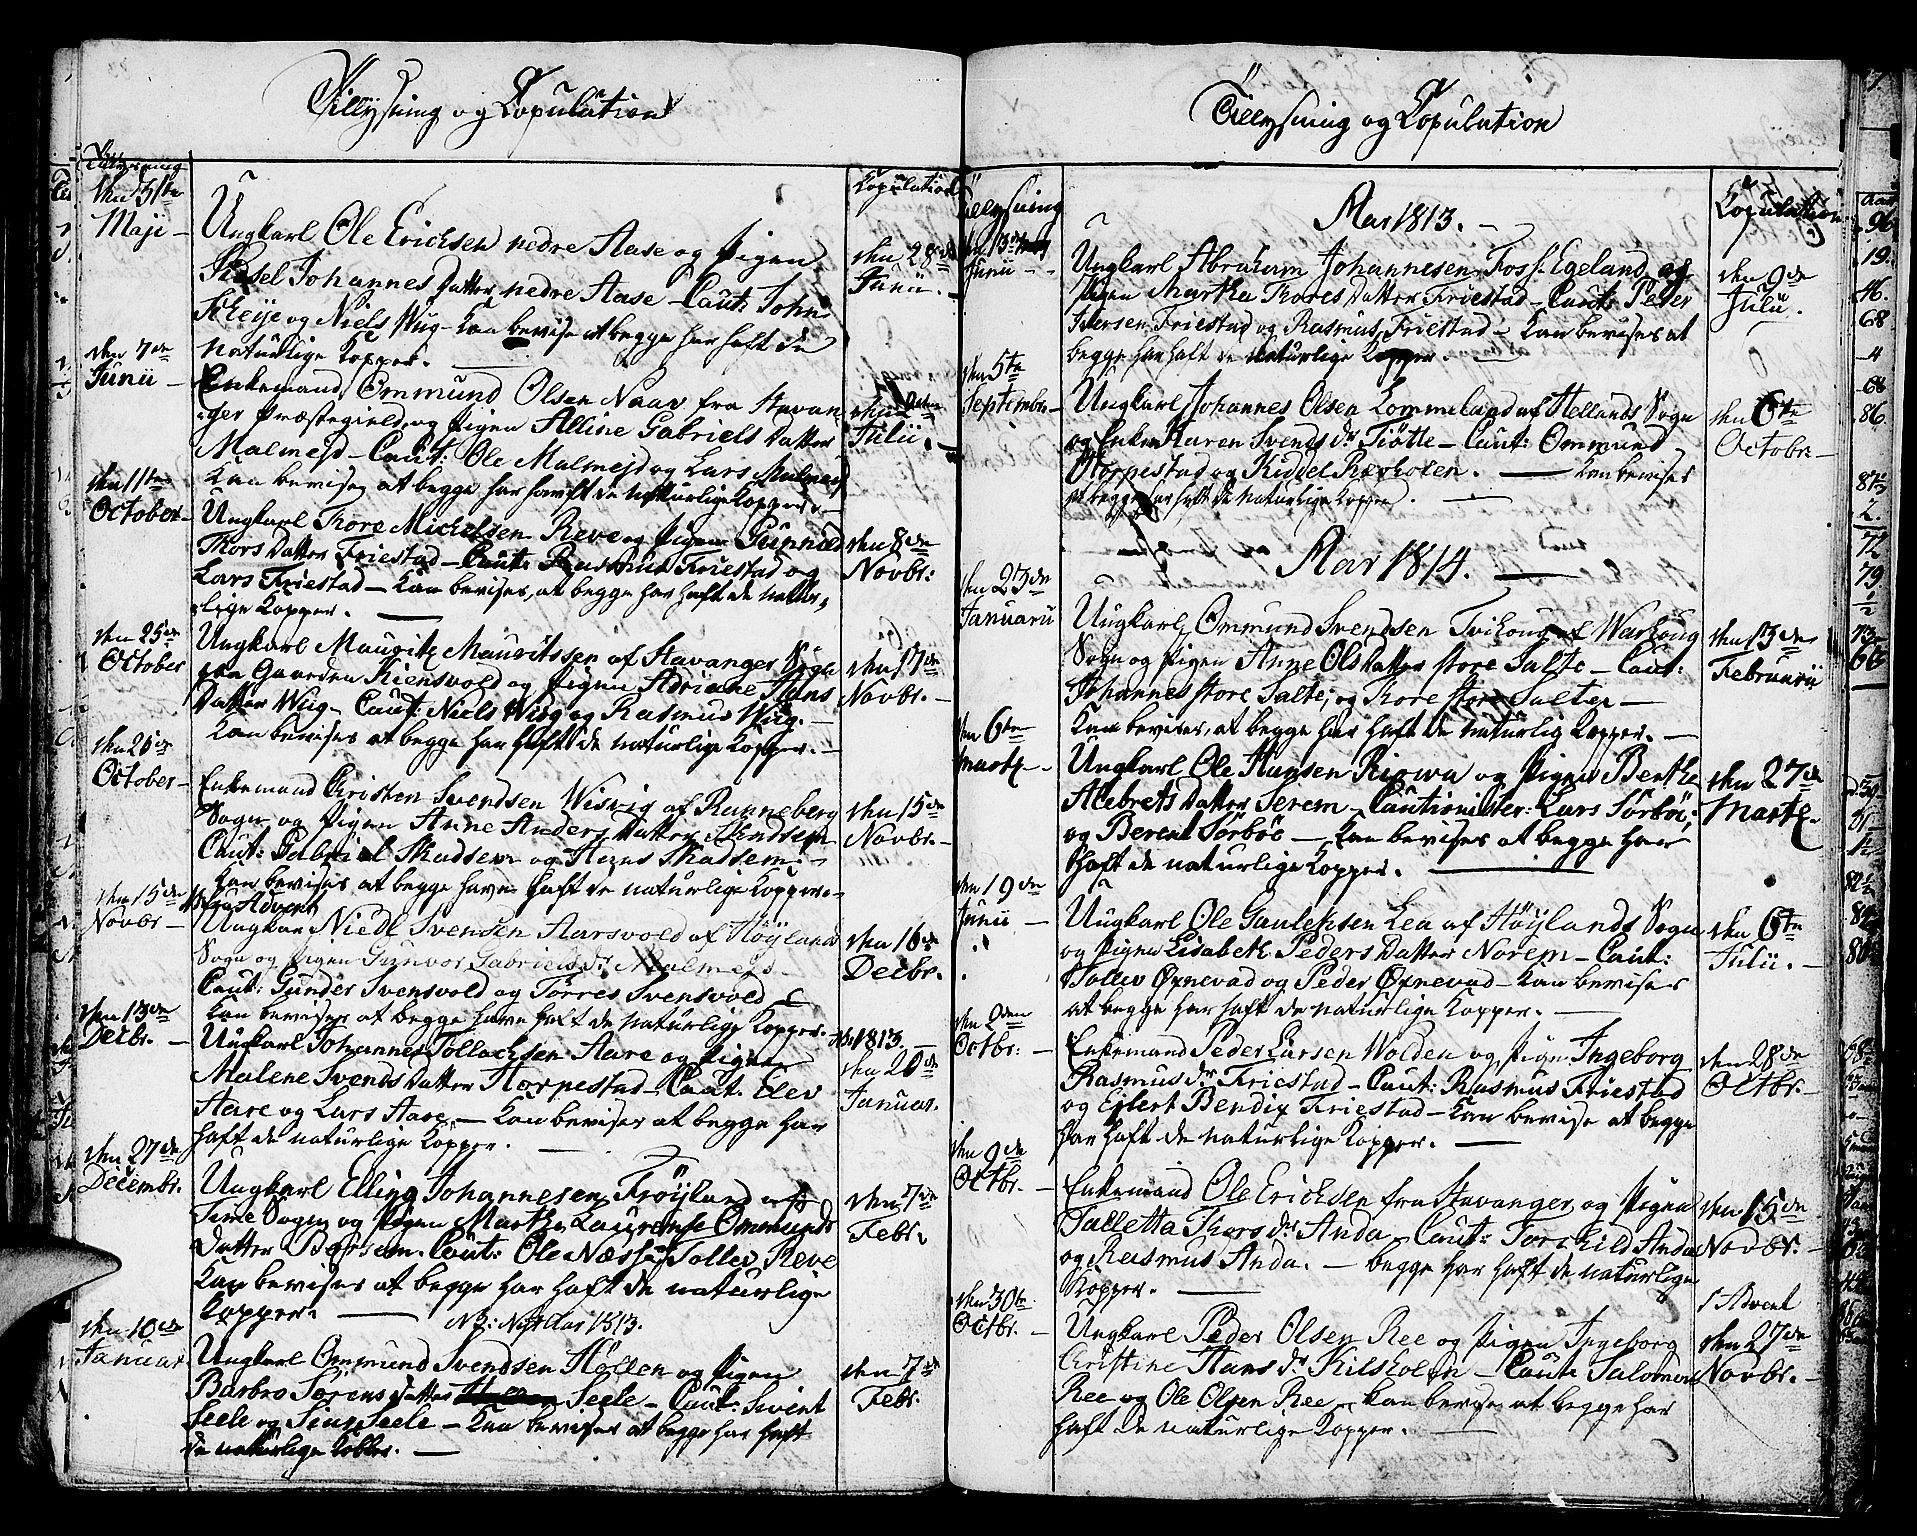 Tillysning og Copulation
Tillysning
Copulation
den 31te
Maji
Ungkarl Ole Erichsen nedre Aase og Pigen
Johannes Datter nedre Aase – Caut: John
og Niels Wiig – Kan bevise at begge har haft de
naturlige Kopper.
den 28de
Junii.
den 7de
Junii
Enkemand Ommund Olsen fra Stavan
ger Præstegield, og Pigen Alline Gabriels Datter
Malmejd – Caut: Ole Malmejd og Lars Malmejd
Kan bevise at begge har haft de naturlige Kopper.
Julii.
den 11te
October
Ungkarl Tore Michelsen Reve og Pigen
Thors Datter Friestad – Caut: Rasmus Friestad og
Lars Friestad – Kan bevises, at begge har haft de natur
lige Kopper.
den 8de
Novbr:
den 25de
October
Ungkarl Mauritz Mauritssen af Stavanger Sogn
fra Gaarden Kiensvold og Pigen Adriane Hans
Datter Wiig – Caut: Niels Wiig og Rasmus Wiig.
Kan bevises at begge har haft de naturlige Kopper.
den 17de
Novbr.
den 25de
October
Enkemand Christen Svendsen Wisvig af Ranneberg
Sogn og Pigen Anne Anders Datter
Caut: Gabriel Skadsem og Hans Skadsem.
Kan bevises at begge haver haft de naturlige Kopper.
den 15de
Novbr.
den 15de
Novbr
Advent
Ungkarl Niedl Svensen Aarsvold af Höylands
Sogn og Pigen Gunvor Gabriels dr Malmejd
Caut: Gunder Svensvold og Törres Svensvold
Kan bevises at begge have haft de naturlige Kopper.
den 16de
Decbr.
den 13de
Decbr.
Ungkarl Johannes Tollachsen Aare og Pigen
Malene Svends Datter Horpestad – Caut. Elev
Aare og Lars Aare, – Kan bevises at begge har
haft de naturlige Kopper.
1813.
den 20de
Januar.
den 27de
Decembr.
Ungkarl Elling Johannesen Fröyland af
Time Sogn og Pigen Marthe Laurense Ommunds
Datter – Caut: Ole Næsse, Tollev Reve
Kan bevises at begge har haft de naturlige
Kopper.
den 7de
Febr.
NB: Nyt Aar 1813.
den 10de
Januar
Ungkarl Ommund Svendsen Höllen og Pigen
Barbro Sörens Datter Seele – Caut: Sivent
Seele og Seele – Kan bevises at begge har haft
de naturlige Kobber.
den 7de
Febr.
Tillysning og Copulation
Tillysning
Copulation
Aar 1813.
den 13de
Junii
Ungkarl Abraham Johannesen Foss Egeland og
Pigen Martha Thores Datter Friestad – Caut: Peder
Iversen Friestad og Rasmus Friestad – Kan bevises at
begge har haft de naturlige Kopper.
den 9de
Julii.
den 5te
Septembr.
Ungkarl Johannes Olsen Lommeland af Hellands Sogn
og Enken Karen Svends dr Tiötte – Caut: Ommund
Horpestad og Kiddel – Kan bevises
at begge har haft de naturlige Kopper.
den 6te
Octobr.
Aar 1814.
den 23de
Januarii
Ungkarl Ommund Svendsen af Warhoug
Sogn og Pigen Anne Ols Datter store Salte – Caut:
Johannes store Salte, og Tore store Salte
Kan bevises, at begge har haft de naturlig Kopper.
den 13de
Februarii
den 6te
Martz
Ungkarl Ole Hansen og Pigen Berthe
Alebrets Datter Serem – Cautionister: Lars Sörböe,
og Berent Sörböe – Kan bevises at begge haver
haft de naturlige Kopper.
den 27de
Martz
den 19de
Junii
Ungkarl Ole Gautesen Lea af Höylands Sogn
og Pigen Lisabeth Peders Datter Norem – Caut:
Tollev Ørnevad og Peder Ørnevad – Kan bevises
at begge har haft de naturlige Kopper.
den 6te
Julii.
den 2den
Octbr:
Enkemand Peder Larsen Wolden og Pigen Ingeborg
Rasmus dr Friestad – Caut: Rasmus Friestad
og Ejlert Bendix Friestad – Kan bevise at begge
har haft de naturlige Kopper.
den 28de
Octbr.
den 9de
Octbr.
Enkemand Ole Erichsen fra Stavanger, og Pigen
Talletta Thors dr Anda – Caut: Torchild Anda
og Rasmus Anda. – begge har haft de naturlige
Kopper.
den 15de
Novbr.
den 30te
Octbr.
Ungkarl Peder Olsen Ree og Pigen Ingeborg
Christine Hans dr Kilsholen – Caut: Salomon
Ree og Ole Olsen Ree – kan bevises at begge har
haft de naturlige Kopper.
1 Advent
den 27de
Novbr.